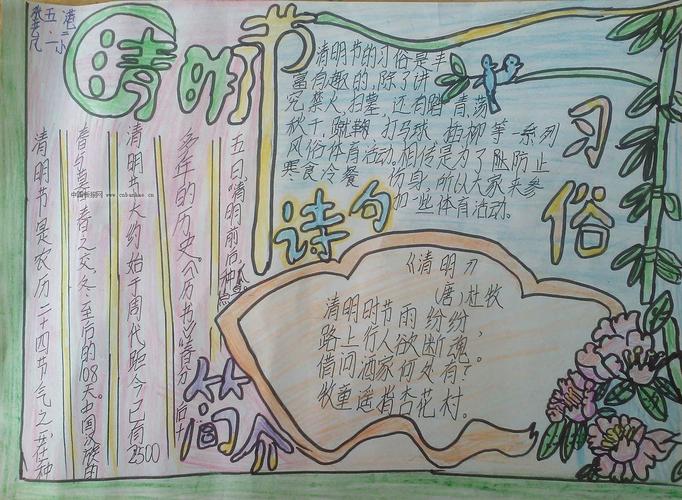 港二小
五.一
清明节
清明节是农历二十四节气之一，在仲
春与暮春之交，冬至后的108天。中国汉族的
清明节大约始于周代，距今已有2500
多年的历史。《历书》："春分后十
五日，"清明前后，种
简介
清明节的习俗是丰
富有趣的，除了讲
究禁火、扫墓，还有踏青、荡
秋千、蹴鞠、打马球、插柳等一系列
风俗体育活动。相传是为了防止
寒食冷餐伤身，所以大家来参
加一些体育活动。
习俗
诗句
《清明》
（唐）杜牧
清明时节雨纷纷，
路上行人欲断魂。
借问酒家何处有？
牧童遥指杏花村。
中国板报网
www.cnbanbao.cn